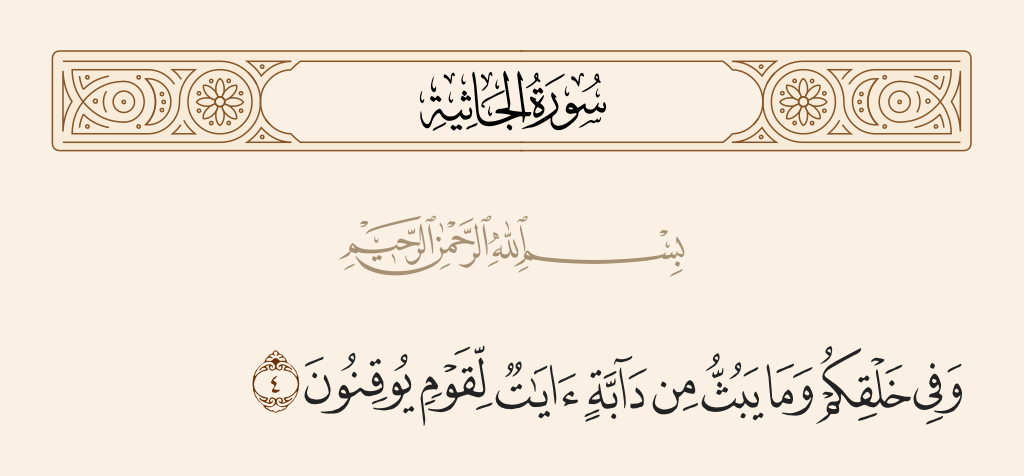 سُورَةُ الجَاثِيَةِ
بِسْمِ ٱللَّهِ ٱلرَّحْمَٰنِ ٱلرَّحِيمِ
وَفِى خَلْقِكُمْ وَمَا يَبُثُّ مِن دَآبَّةٍ ءَايَٰتٌ لِّقَوْمٍ يُوقِنُونَ ٤